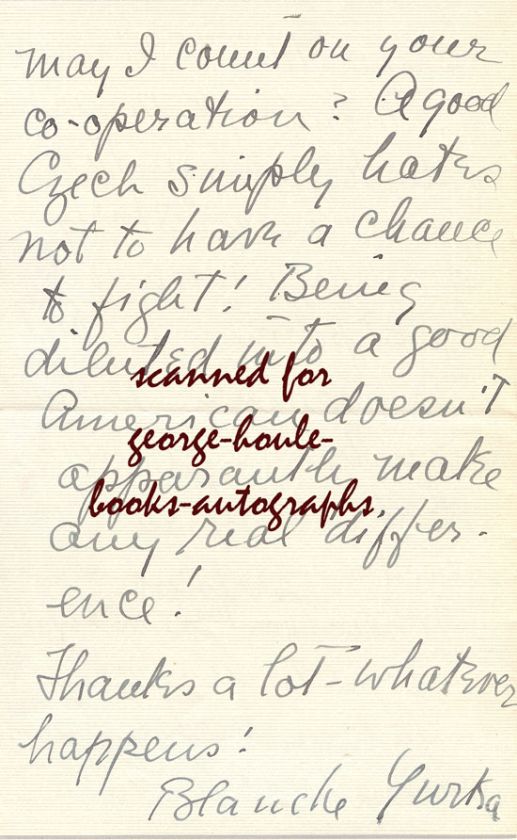 may I count on your
co-operation? A good
Czech simply hates
not to have a chance
to fight! Being
diluted into a good
scanned for
American doesn't
george-houle-
apparantly make
books-autographs.
any real differ-
ence!
Thanks a lot-whatever
happens!
Blanche Yurka